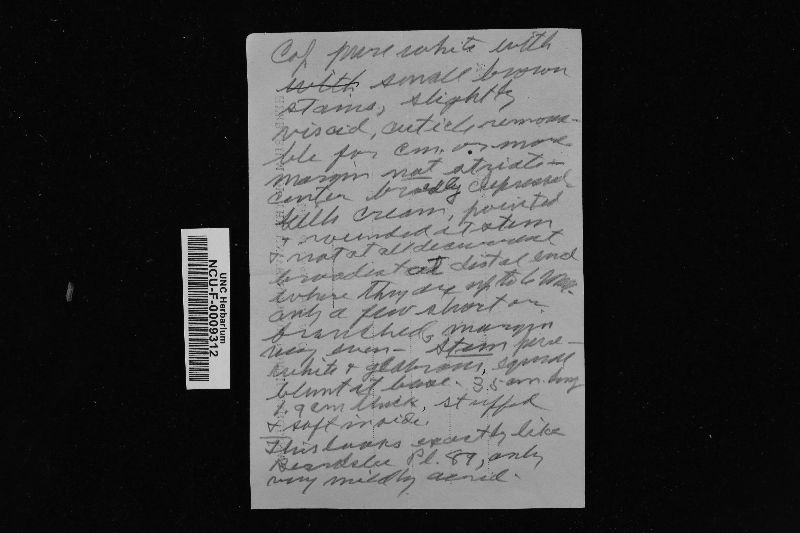 Cap pure white with
with small brown
stains, slightly
viscid, cuticle remova-
ble for cm. or more
margin not striate -
center broadly depressed
Gills cream, pointed
& rounded at stem
& not at all decurrent
broadest at distal end
where they are up to 6 mm.
only a few short or
branched, margin
very even - Stem pure -
white & glabrous, equal
blunt at base. 3.5 cm. long
& .9 cm thick, stuffed
& soft inside.
This looks exactly like
Beardslee Pl. 89, only
very mildly acrid.
UNC Herbarium
NCU-F-0009312